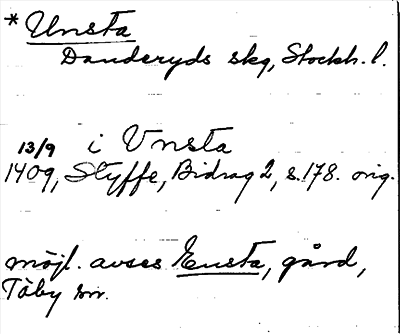 * Unsta
Danderyds skg, Stockh. l.
13/9 i Vnsta
1409, Styffe, Bidrag 2, s. 178. orig.
möjl. avses Ensta, gård,
Täby sn.